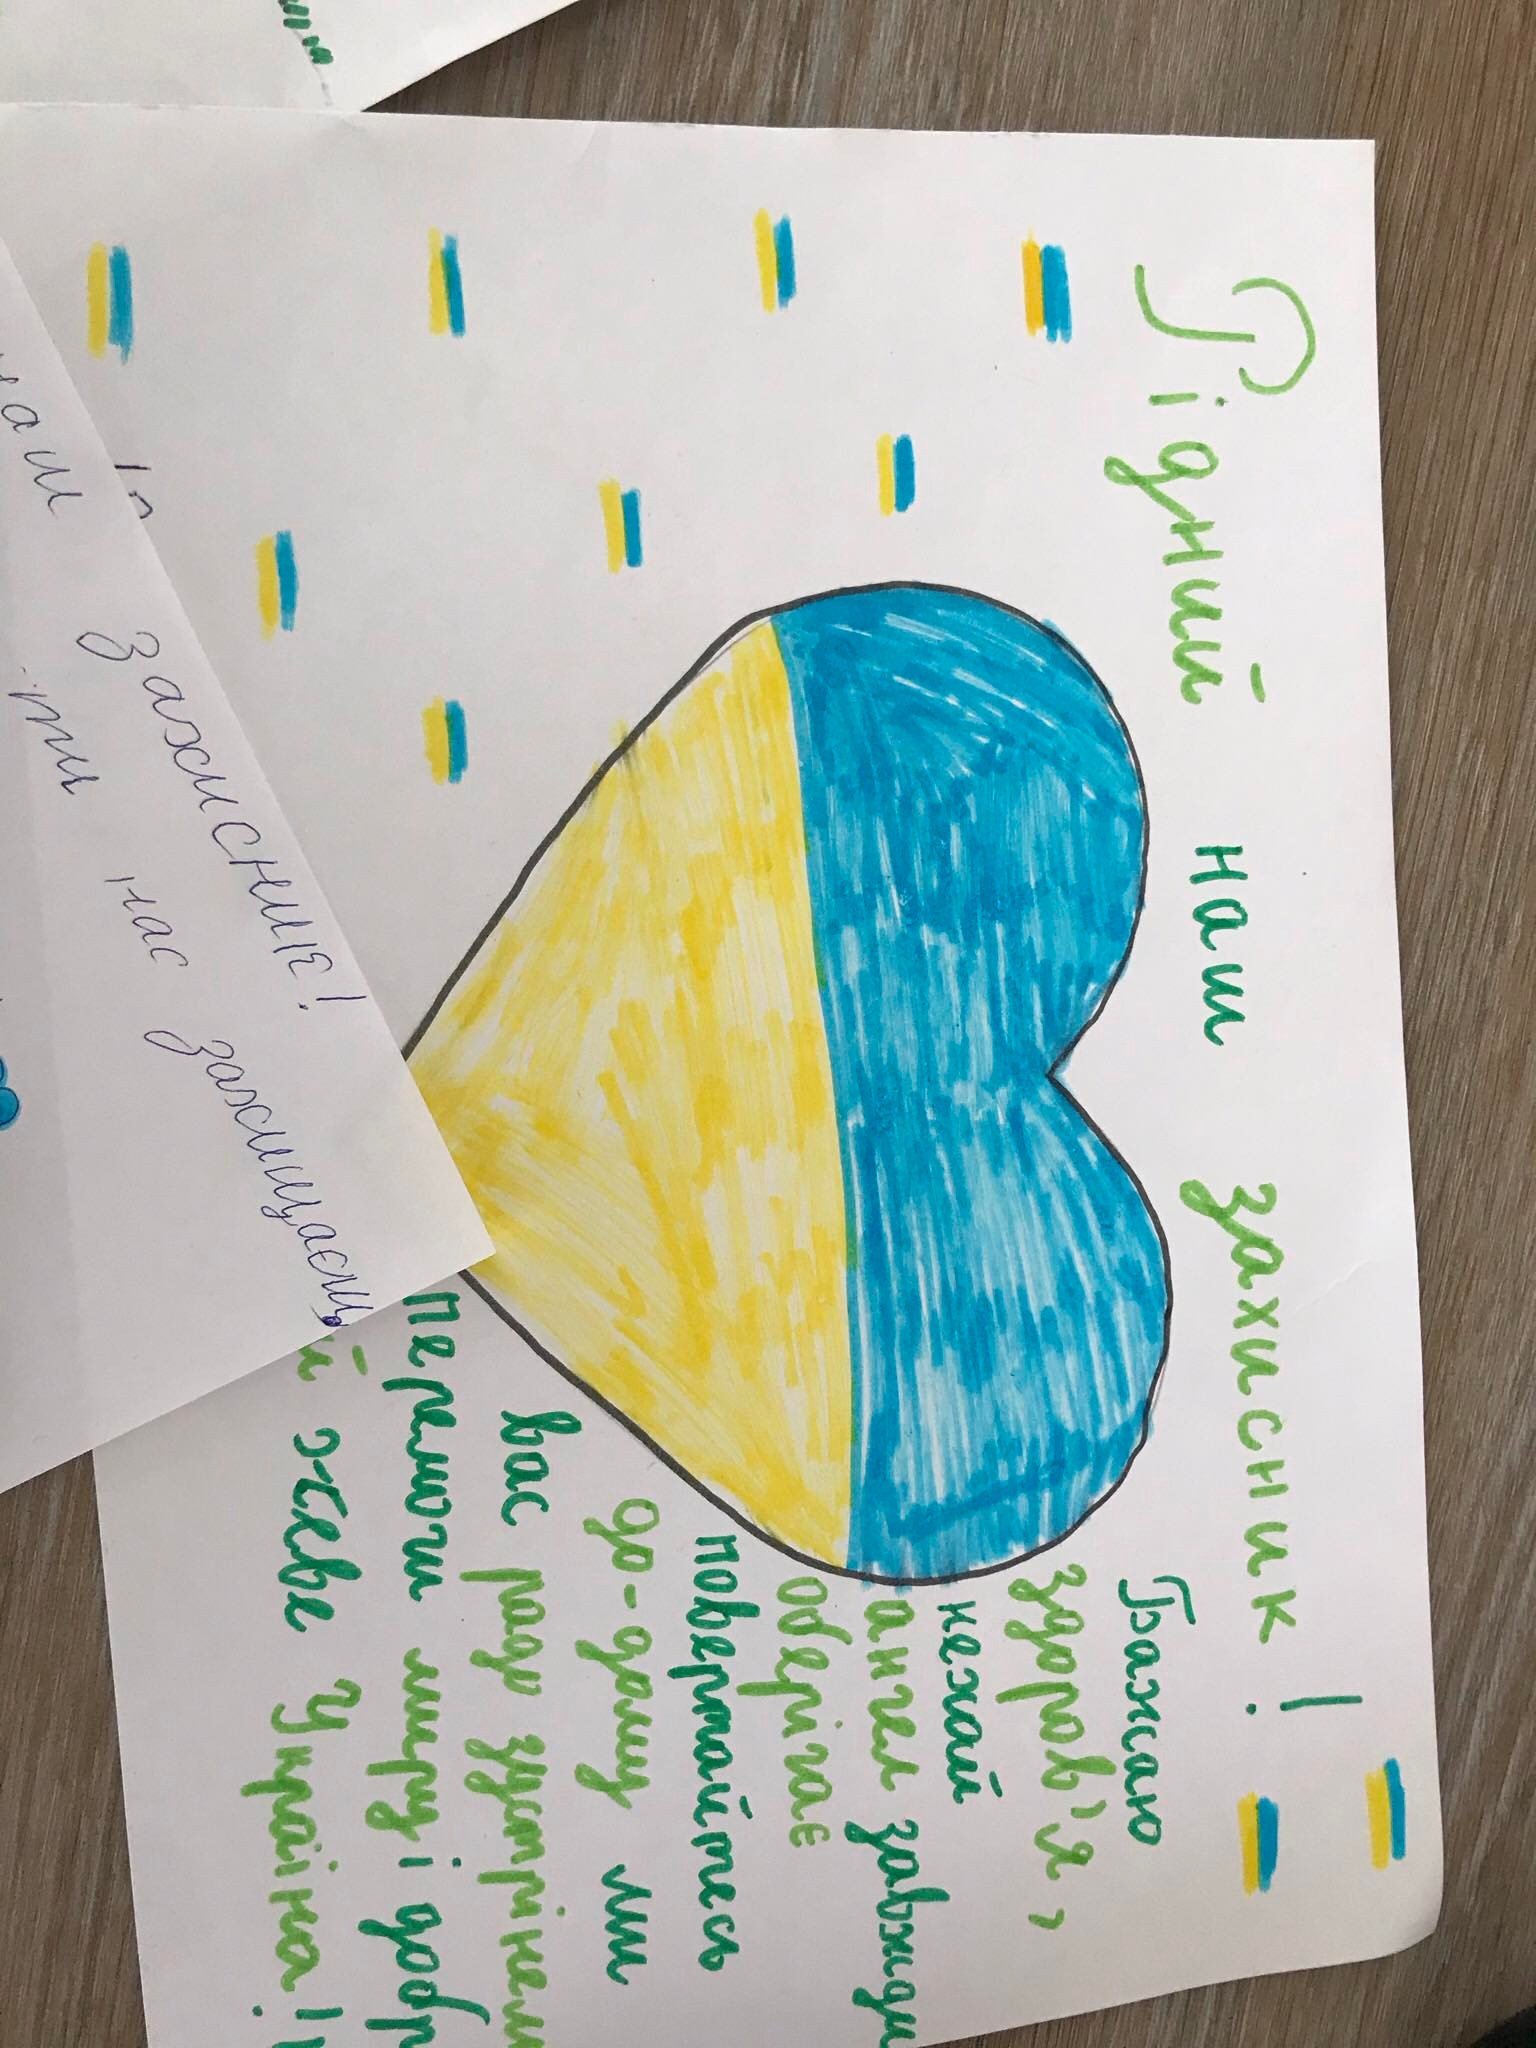 Рідний наш захисник!
Бажаю
здоров'я,
нехай
ангел завжди
оберігає
повертайтесь
до-дому ми
вас радо зустрінем
перемоги миру і добр
й живе Україна!
захисник!
нас захищаєш